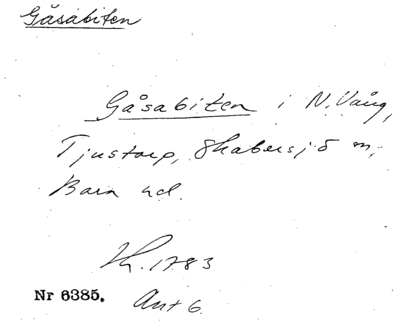 Gåsabiten
Gåsabiten i N. Vång,
Tjustorp, Skabersjö sn,
Bara hd.
Kh. 1783
Nr 6385. Akt 6.